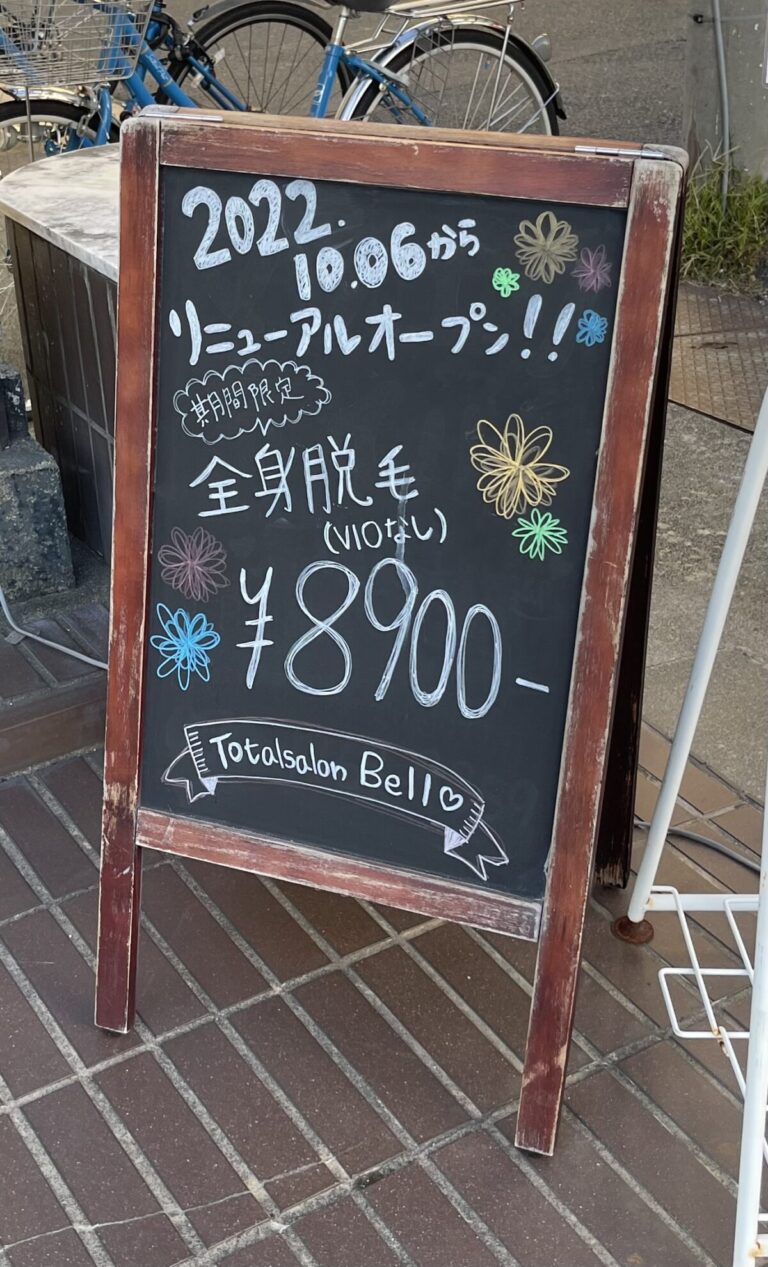 2022.
10.06から
リニューアルオープン!!
期間限定
全身脱毛
(VIOなし)
¥8900-
Totalsalon Bell♡